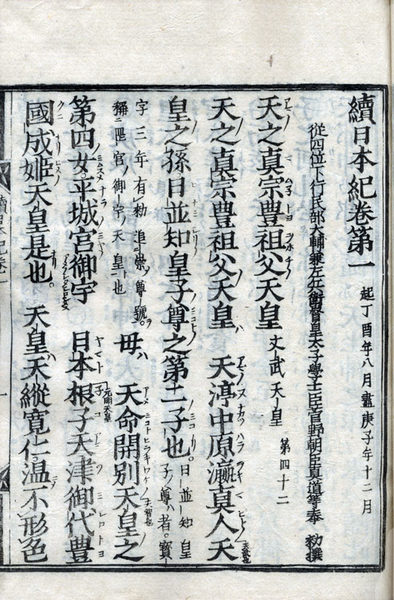 續日本紀卷第一 起丁酉年八月盡庚子年十二月
從四位下行民部大輔兼左兵衛督皇太子學士臣菅野朝臣眞道等奉 勅撰
天之眞宗豊祖父天皇 文武天皇 第四十二
天之眞宗豊祖父天皇 天渟中原瀛眞人天
皇之孫日並知皇子尊之第二子也。日並知皇子尊者。寶
字三年有勅追崇尊號。稱岡宮御宇天皇也 母天命開別天皇之
第四女平城宮御宇 日本根子天津御代豊
國成姫天皇是也。天皇天縱寬仁温不形色